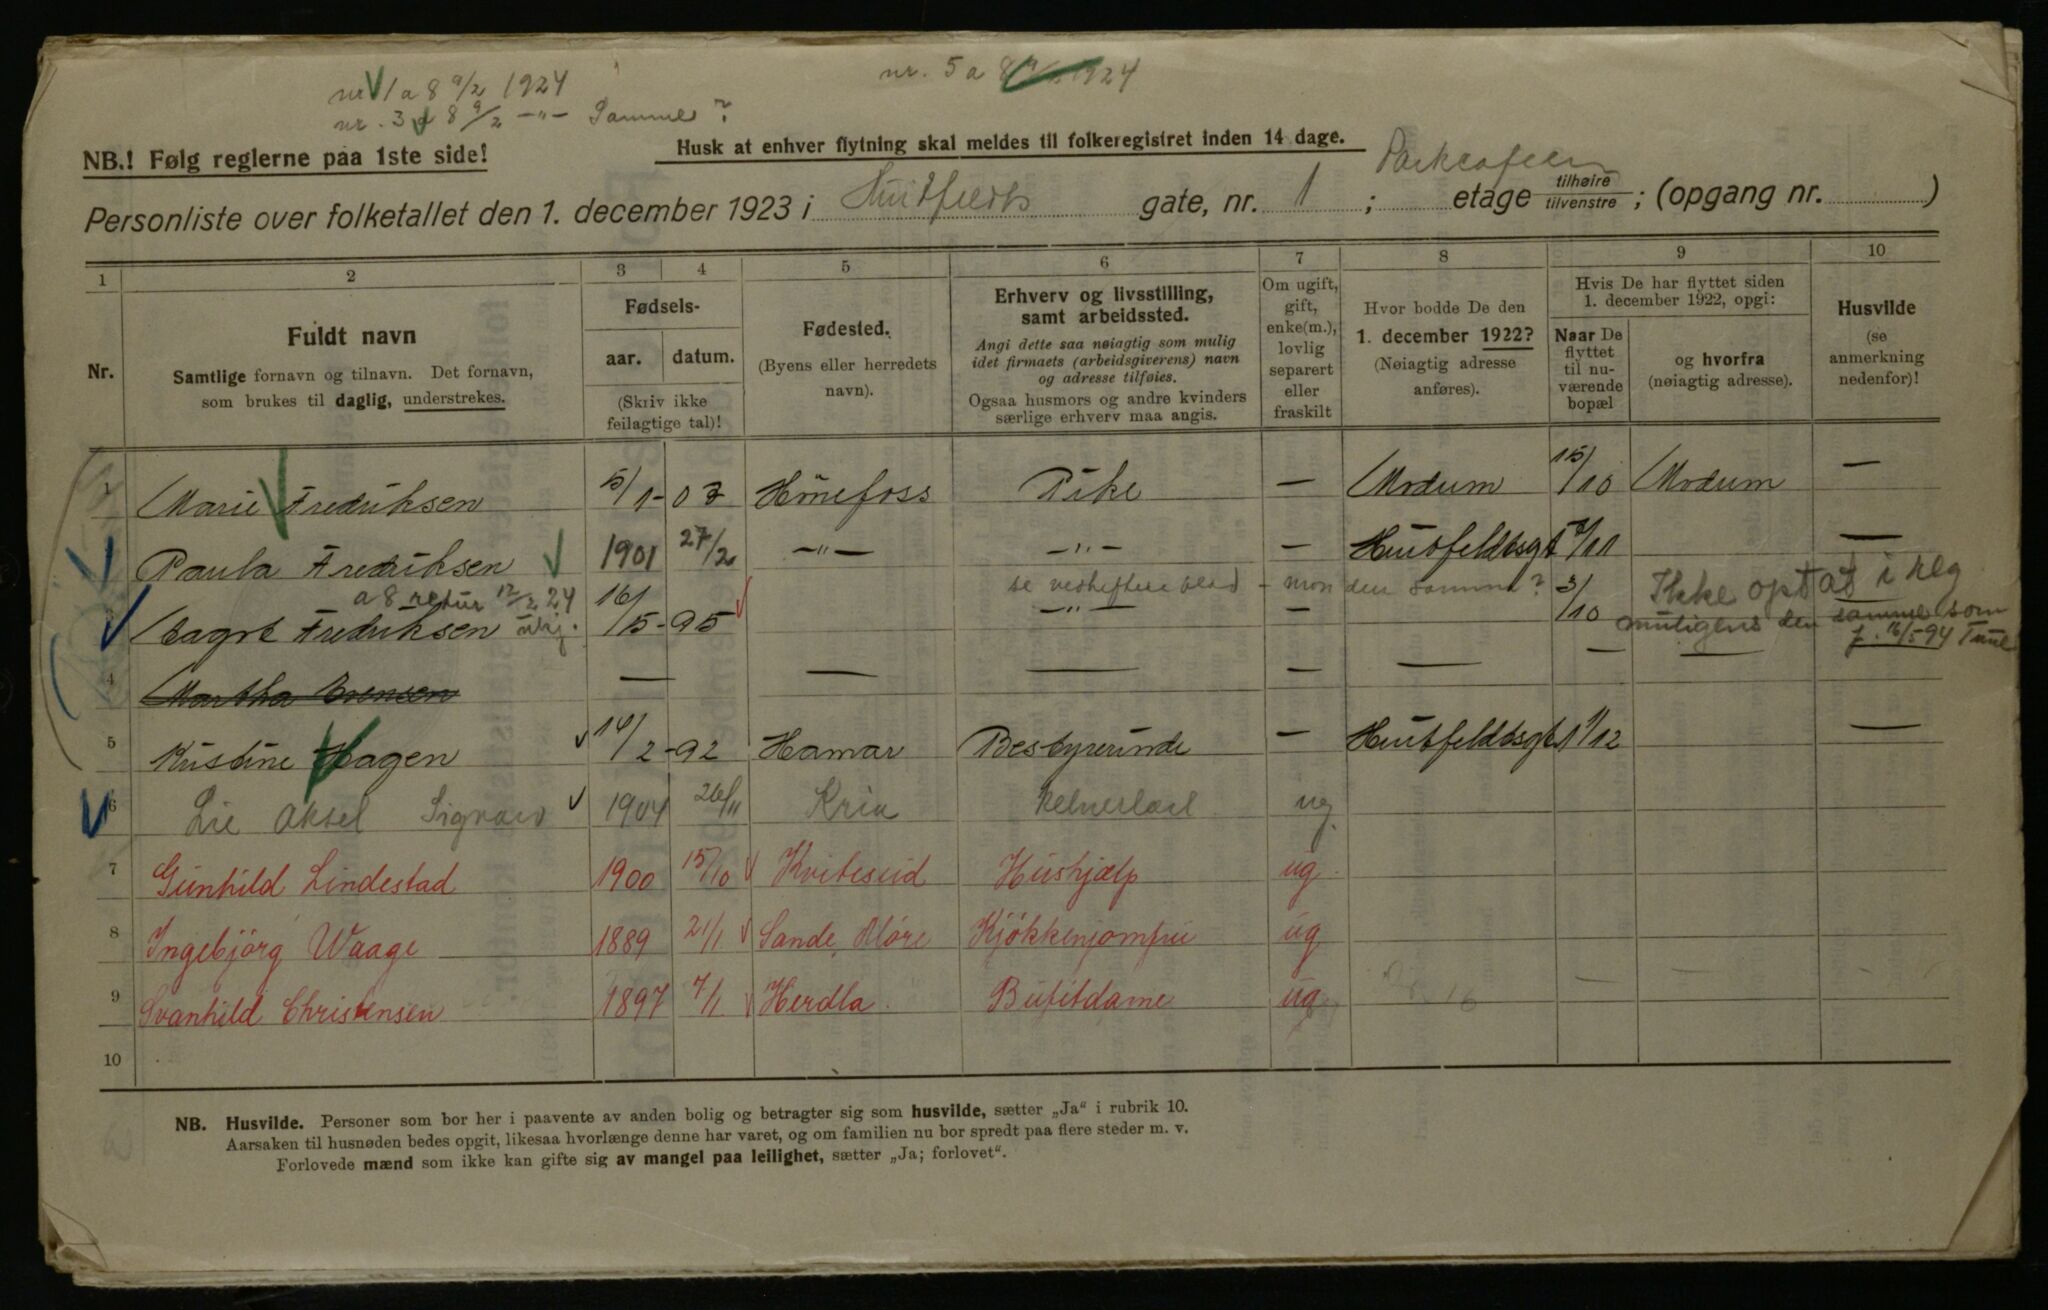 nr 1 a 8 9/2 1924
nr. 5 a 8 9/2 1924
nr. 3 a 8 9/2 —"— Samme?
NB.! Følg reglerne paa 1ste side!
Husk at enhver flytning skal meldes til folkeregistret inden 14 dage.
Parkcafeen
Personliste over folketallet den 1. december 1923 i Huitfeldts gate, nr. 1 ; etage tilhøire tilvenstre ; (opgang nr. )
1 2 3 4 5 6 7 8 9 10
Nr.
Fuldt navn
Samtlige fornavn og tilnavn. Det fornavn,
som brukes til daglig, understrekes.
Fødsels-
aar. datum.
(Skriv ikke
feilagtige tal)!
Fødested.
(Byens eller herredets
navn).
Erhverv og livsstilling,
samt arbeidssted.
Angi dette saa nøiagtig som mulig
idet firmaets (arbeidsgiverens) navn
og adresse tilføies.
Ogsaa husmors og andre kvinders
særlige erhverv maa angis.
Om ugift,
gift,
enke(m.),
lovlig
separert
eller
fraskilt
Hvor bodde De den
1. december 1922?
(Nøiagtig adresse
anføres).
Hvis De har flyttet siden
1. december 1922, opgi:
Naar De
flyttet
til nu-
værende
bopæl
og hvorfra
(nøiagtig adresse).
Husvilde
(se
anmerkning
nedenfor)!
1 Marie Fredriksen 5/1-03 Hönefoss Pike — Modum 15/10 Modum —
Paula Fredriksen 1901 27/2 —"— —"— — Huitfeldtsgt 1/11 —
a 8 retur 12/2 24 se vedheftede blad - mon den samme? Ikke opt at i reg
3 Dagrt Fredriksen 16/5-95 —"— — 3/10 muligens den samme som
f. 16/5 94 Tune
4 Martha Evensen — — — — — — —
5 Kristine Hagen 14/2-92 Hamar Bestyrerinde — Huitfeldtsgt 1 1/12 —
6 Lie Aksel Sigvard 1904 26/11 Kria kelnerlærl ug
7 Gunhild Lindestad 1900 15/10 Kviteseid Hushjælp ug
8 Ingebjörg Waage 1889 21/1 Sande, Möre Kjökkenjomfru ug
9 Svanhild Christensen 1897 7/1 Herdla Bufetdame ug — — —
10
NB. Husvilde. Personer som bor her i paavente av anden bolig og betragter sig som husvilde, sætter „Ja“ i rubrik 10.
Aarsaken til husnøden bedes opgit, likesaa hvorlænge denne har varet, og om familien nu bor spredt paa flere steder m. v.
Forlovede mænd som ikke kan gifte sig av mangel paa leilighet, sætter „Ja; forlovet“.